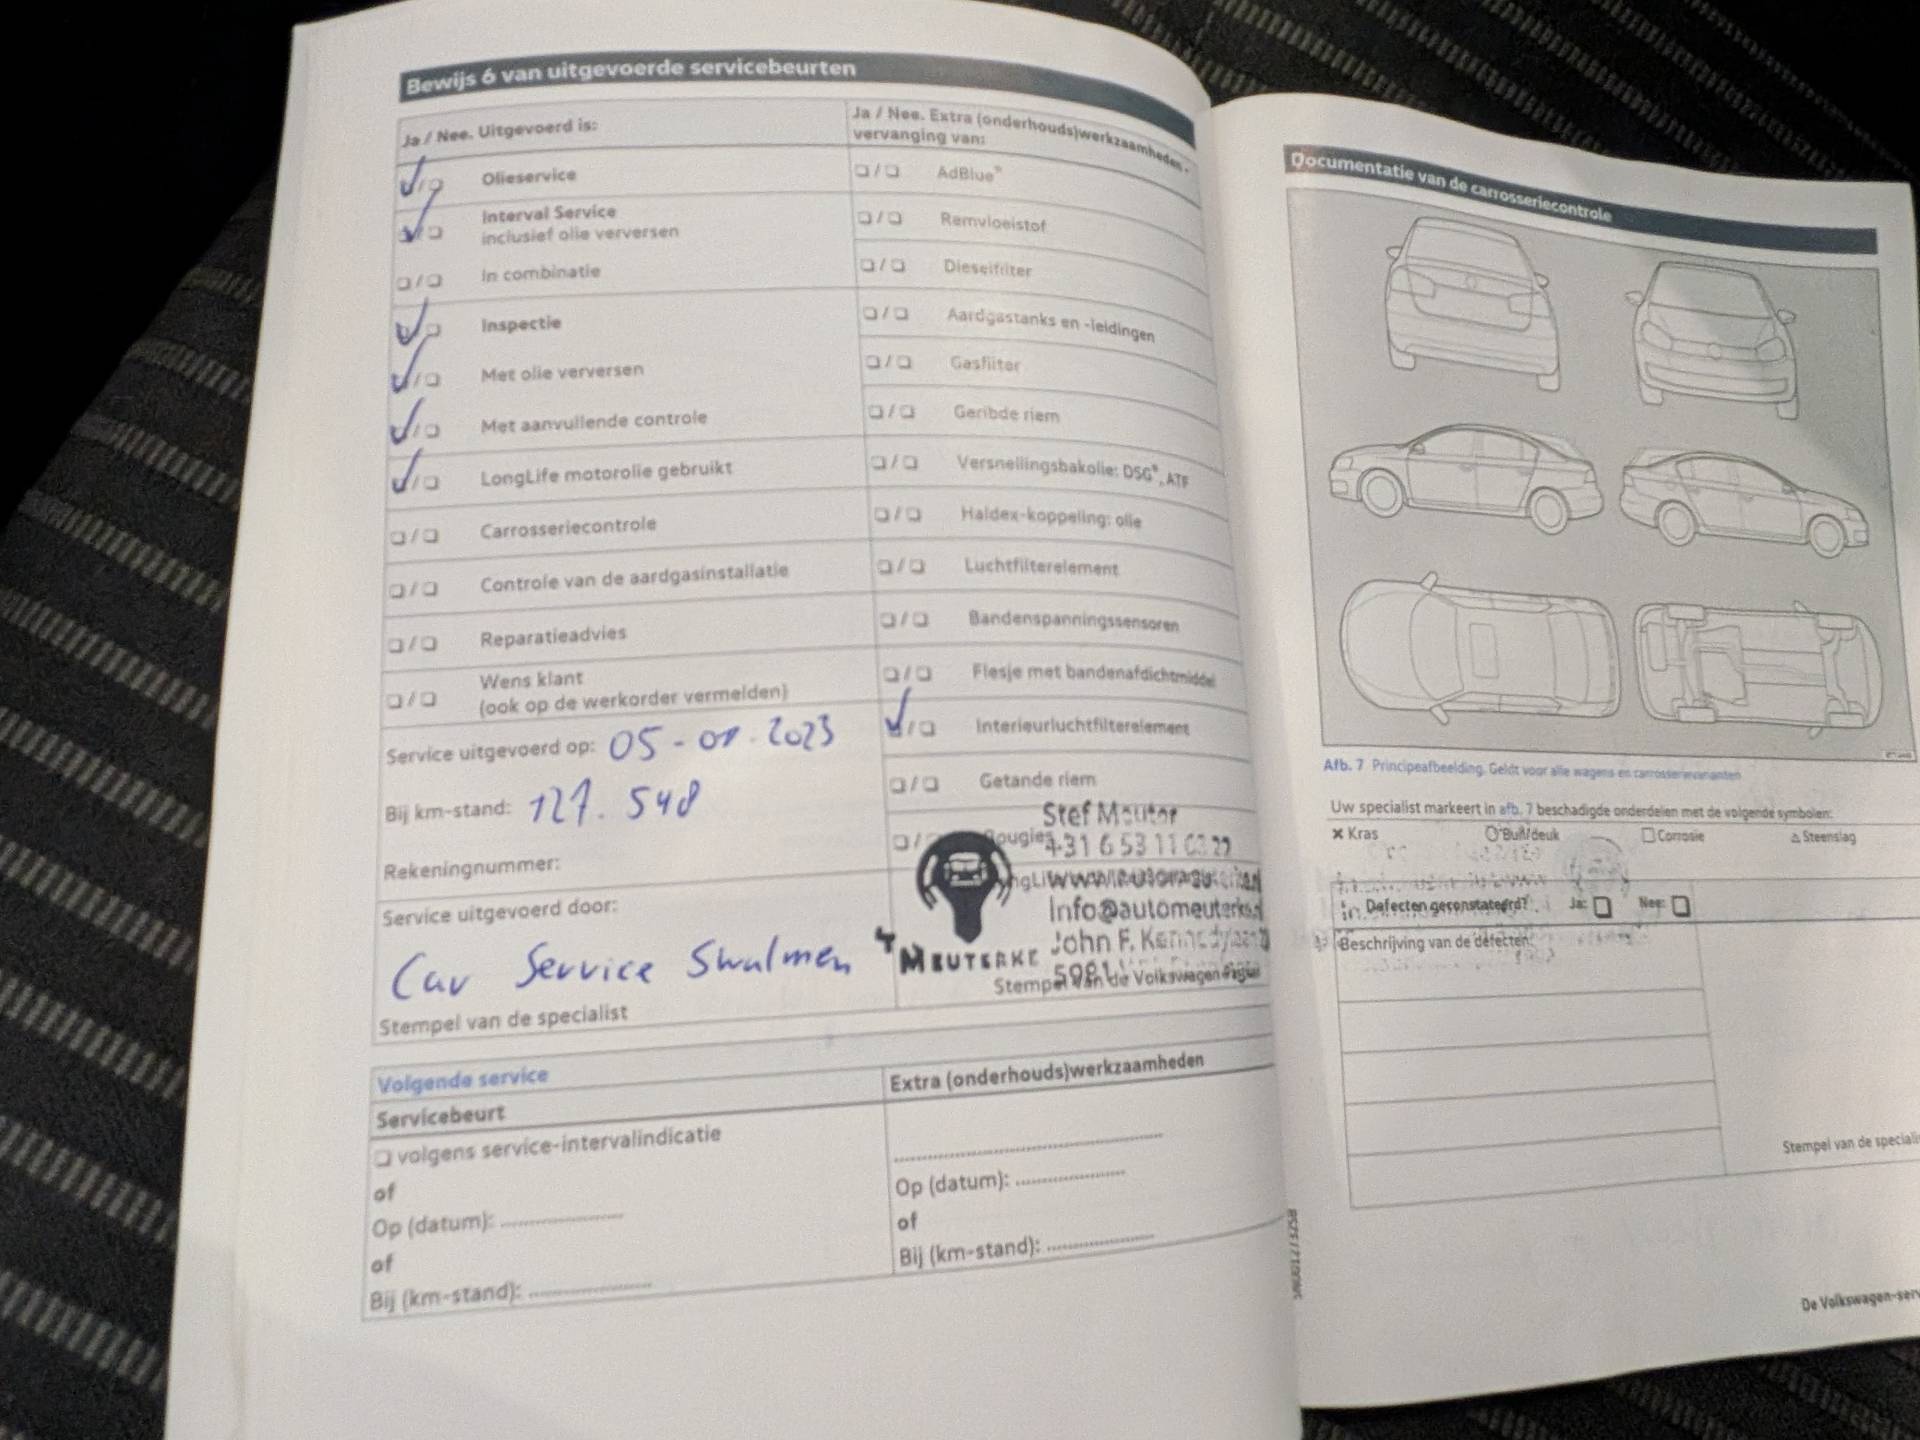 Bewijs 6 van uitgevoerde servicebeurten
Ja / Nee. Uitgevoerd is:
Olieservice
Interval Service
inclusief olie verversen
In combinatie
Inspectie
Met olie verversen
Met aanvullende controle
LongLife motorolie gebruikt
Carrosseriecontrole
Controle van de aardgasinstallatie
Reparatieadvies
Wens klant
(ook op de werkorder vermelden)
Service uitgevoerd op: 05 - 01 - 2023
Bij km-stand: 127.548
Rekeningnummer:
Service uitgevoerd door:
Car Service Swalmen
Stempel van de specialist
Ja / Nee. Extra (onderhouds)werkzaamheden -
vervanging van:
AdBlue®
Remvloeistof
Dieselfilter
Aardgastanks en -leidingen
Gasfilter
Geribde riem
Versnellingsbakolie: DSG®, ATF
Haldex-koppeling: olie
Luchtfilterelement
Bandenspanningssensoren
Flesje met bandenafdichtmiddel
Interieurluchtfilterelement
Getande riem
Bougies
Stef Meuter
+31 6 53 11
John F.
MEUTERKE
Stempel van de Volkswagen
Volgende service
Servicebeurt
volgens service-intervalindicatie
of
Op (datum):
of
Bij (km-stand):
Extra (onderhouds)werkzaamheden
Op (datum):
of
Bij (km-stand):
Documentatie van de carrosseriecontrole
Afb. 7 Principeafbeelding. Geldt voor alle wagens en carrosserievarianten
Uw specialist markeert in afb. 7 beschadigde onderdelen met de volgende symbolen:
Kras Buil/deuk Corrosie Steenslag
Defecten geconstateerd? Ja: Nee:
Beschrijving van de defecten:
Stempel van de speciali
De Volkswagen-serv